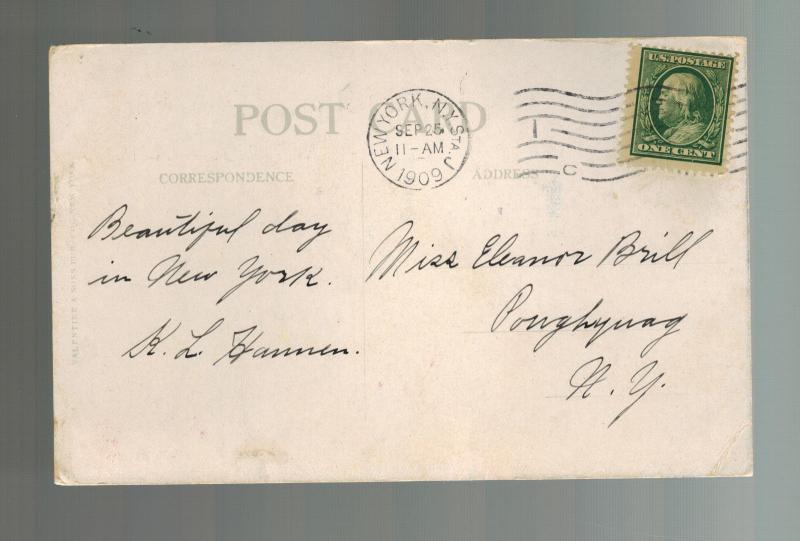 POST CARD
U.S. POSTAGE
ONE CENT
NEW YORK, N.Y. STA. J
SEP 25
11-AM
1909
C
CORRESPONDENCE
ADDRESS
Beautiful day
in New York.
K. L. Hannen.
Miss Eleanor Brill
Poughquag
N. Y.
VALENTINE & SONS